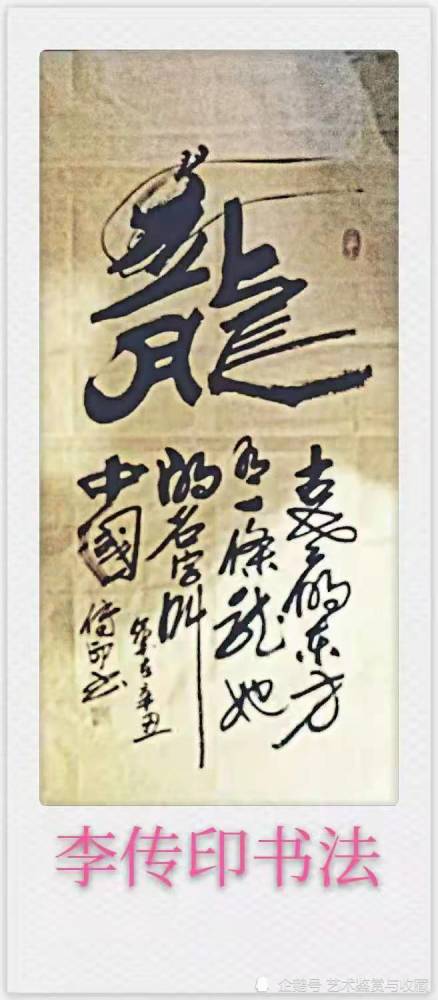 龍
古老的东方
有一條龍她
的名字叫
中國
歲在辛丑
傳印书
李传印书法
企鹅号 艺术鉴赏与收藏